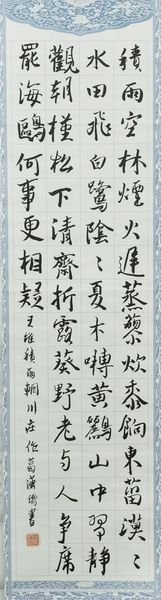 積雨空林煙火遲蒸藜炊黍餉東菑漠〻
水田飛白鷺陰〻夏木囀黃鸝山中習靜
觀朝槿松下清齋折露葵野老与人爭席
罷海鷗何事更相疑
王維積雨輞川庄作葛蕭儒書